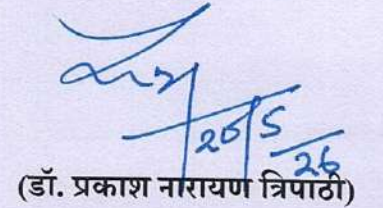 20/5/26
(डॉ. प्रकाश नारायण त्रिपाठी)